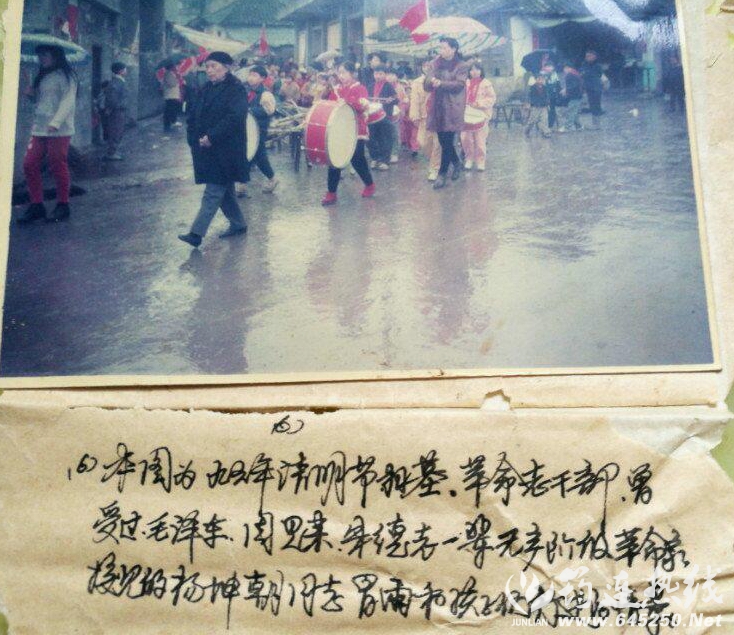 (6)
(6)本图为九五年清明节扫墓、革命老干部、曾
受过毛泽东、周恩来、朱德老一辈无产阶级革命家
接见的杨坤朝同志冒雨和孩子们
筠连热线
JUNLIAN www.645250.Net